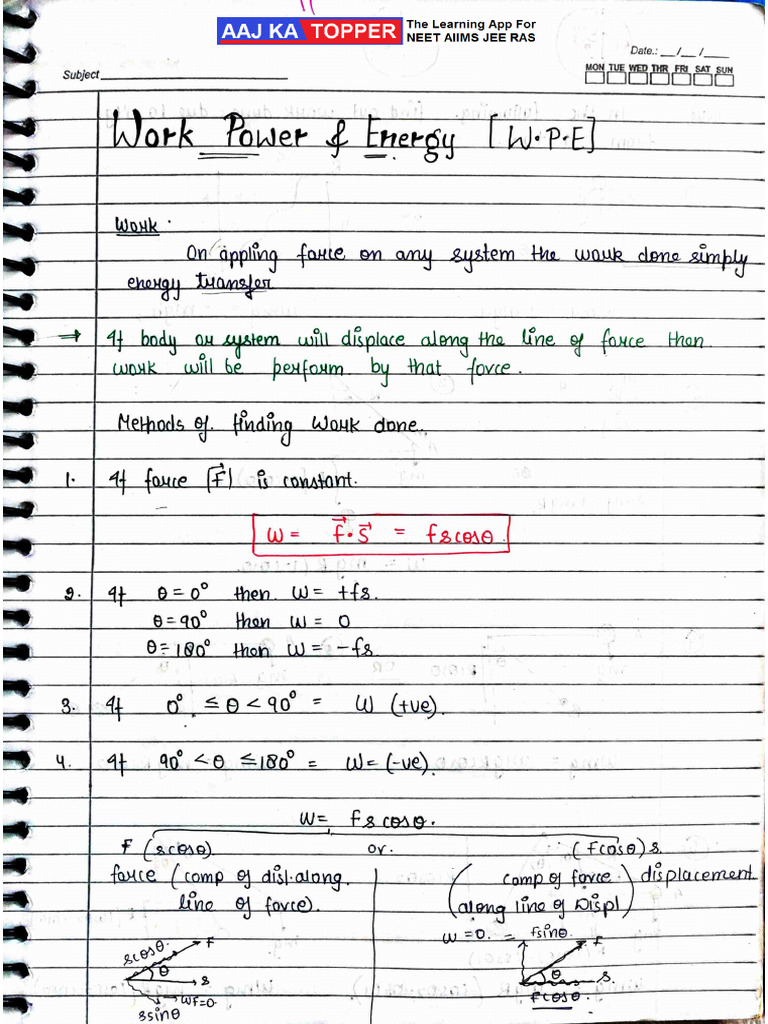 AAJ KA TOPPER
The Learning App For
NEET AIIMS JEE RAS
Date.: __/__/____
Subject
MON TUE WED THR FRI SAT SUN
Work Power & Energy [W.P.E]
Work.
On appling force on any system the work done simply
energy transfer
⇒ If body or system will displace along the line of force then
work will be perform by that force.
Methods of finding Work done.
1. If force |F⃗| is constant.
W = F⃗.S⃗ = fscosθ.
2. If θ=0° then W= +fs.
θ=90° then W = 0
θ=180° then W = -fs
3. If 0° ≤ θ < 90° = W (+ve).
4. If 90° < θ ≤ 180° = W = (-ve).
W= fscosθ.
F (scosθ) or. (fcosθ) s.
force (comp of disl. along (comp of force) displacement
line of force). (along line of Displ)
W=0. = fsinθ.
scosθ. F F
θ s θ s.
WF=0. fcosθ.
ssinθ